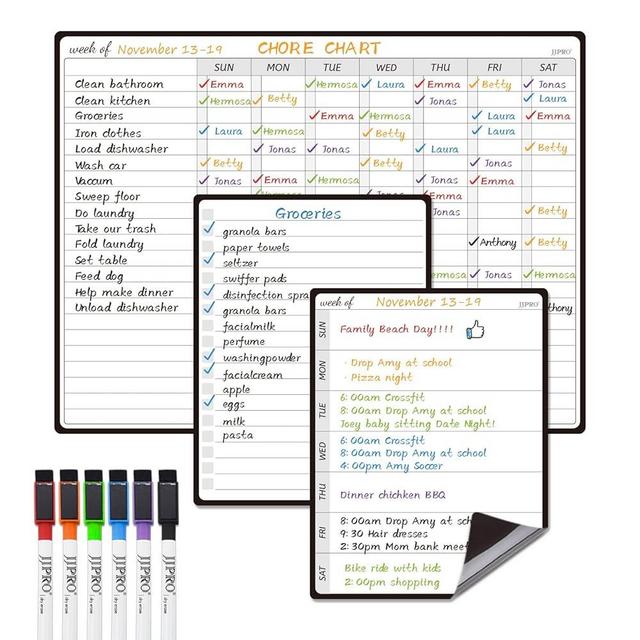 week of November 13-19 CHORE CHART JJPRO
SUN MON TUE WED THU FRI SAT
Clean bathroom Emma Hermosa Laura Emma Betty Jonas
Clean kitchen Hermosa Betty Jonas Laura
Groceries Emma Hermosa Laura Emma
Iron clothes Laura Hermosa Betty Laura
Load dishwasher Jonas Jonas Laura Betty
Wash car Betty Betty Jonas
Vaccum Jonas Emma Hermosa Jonas Emma
Sweep floor Emma
Do laundry Jonas Betty
Take our trash
Fold laundry Anthony Betty
Set table
Feed dog Jonas Hermosa
Help make dinner
Unload dishwasher
Groceries
granola bars
paper towels
seltzer
swiffer pads
disinfection spra
granola bars
facialmilk
perfume
washingpowder
facialcream
apple
eggs
milk
pasta
week of November 13-19 JJPRO
SUN Family Beach Day!!!!
MON · Drop Amy at school
· Pizza night
TUE 6:00am Crossfit
8:00am Drop Amy at school
Joey baby sitting Date Night!
WED 6:00am Crossfit
8:00am Drop Amy at school
4:00pm Amy Soccer
THU Dinner chichken BBQ
FRI 8:00am Drop Amy at sch
9:30 Hair dresses
2:30pm Mom bank meet
SAT Bike ride with kids
2:00pm shopping
JJPRO JJPRO JJPRO JJPRO JJPRO JJPRO